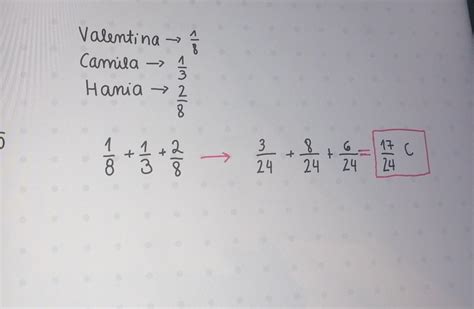 Valentina → 1/8
Camila → 1/3
Hania → 2/8
1/8 + 1/3 + 2/8 → 3/24 + 8/24 + 6/24 = 17/24 C